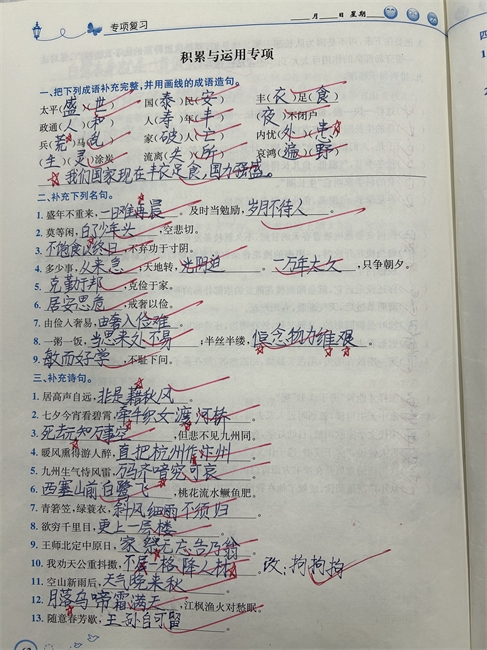 专项复习
月 日 星期
积累与运用专项
一、把下列成语补充完整,并用画线的成语造句。
太平(盛)(世) 国(泰)民(安) 丰(衣)足(食)
政通(人)(和) 人(寿)年(丰) (夜)不闭户
兵(荒)马(乱) 家(破)人(亡) 内忧(外)(患)
(生)(灵)涂炭 流离(失)(所) 哀鸿(遍)(野)
我们国家现在丰衣足食,国力强盛。
二、补充下列名句。
1. 盛年不重来,一日难再晨。及时当勉励,岁月不待人。
2. 莫等闲,白了少年头,空悲切。
3. 不饱食以终日,不弃功于寸阴。
4. 多少事,从来急;天地转,光阴迫。一万年太久,只争朝夕。
5. 克勤于邦,克俭于家。
6. 居安思危,戒奢以俭。
7. 由俭入奢易,由奢入俭难。
8. 一粥一饭,当思来处不易;半丝半缕,恒念物力维艰。
9. 敏而好学,不耻下问。
三、补充诗句。
1. 居高声自远,非是藉秋风。
2. 七夕今宵看碧霄,牵牛织女渡河桥。
3. 死去元知万事空,但悲不见九州同。
4. 暖风熏得游人醉,直把杭州作汴州。
5. 九州生气恃风雷,万马齐喑究可哀。
6. 西塞山前白鹭飞,桃花流水鳜鱼肥。
7. 青箬笠,绿蓑衣,斜风细雨不须归。
8. 欲穷千里目,更上一层楼。
9. 王师北定中原日,家祭无忘告乃翁。
10. 我劝天公重抖擞,不拘一格降人材。改:拘拘拘
11. 空山新雨后,天气晚来秋。
12. 月落乌啼霜满天,江枫渔火对愁眠。
13. 随意春芳歇,王孙自可留